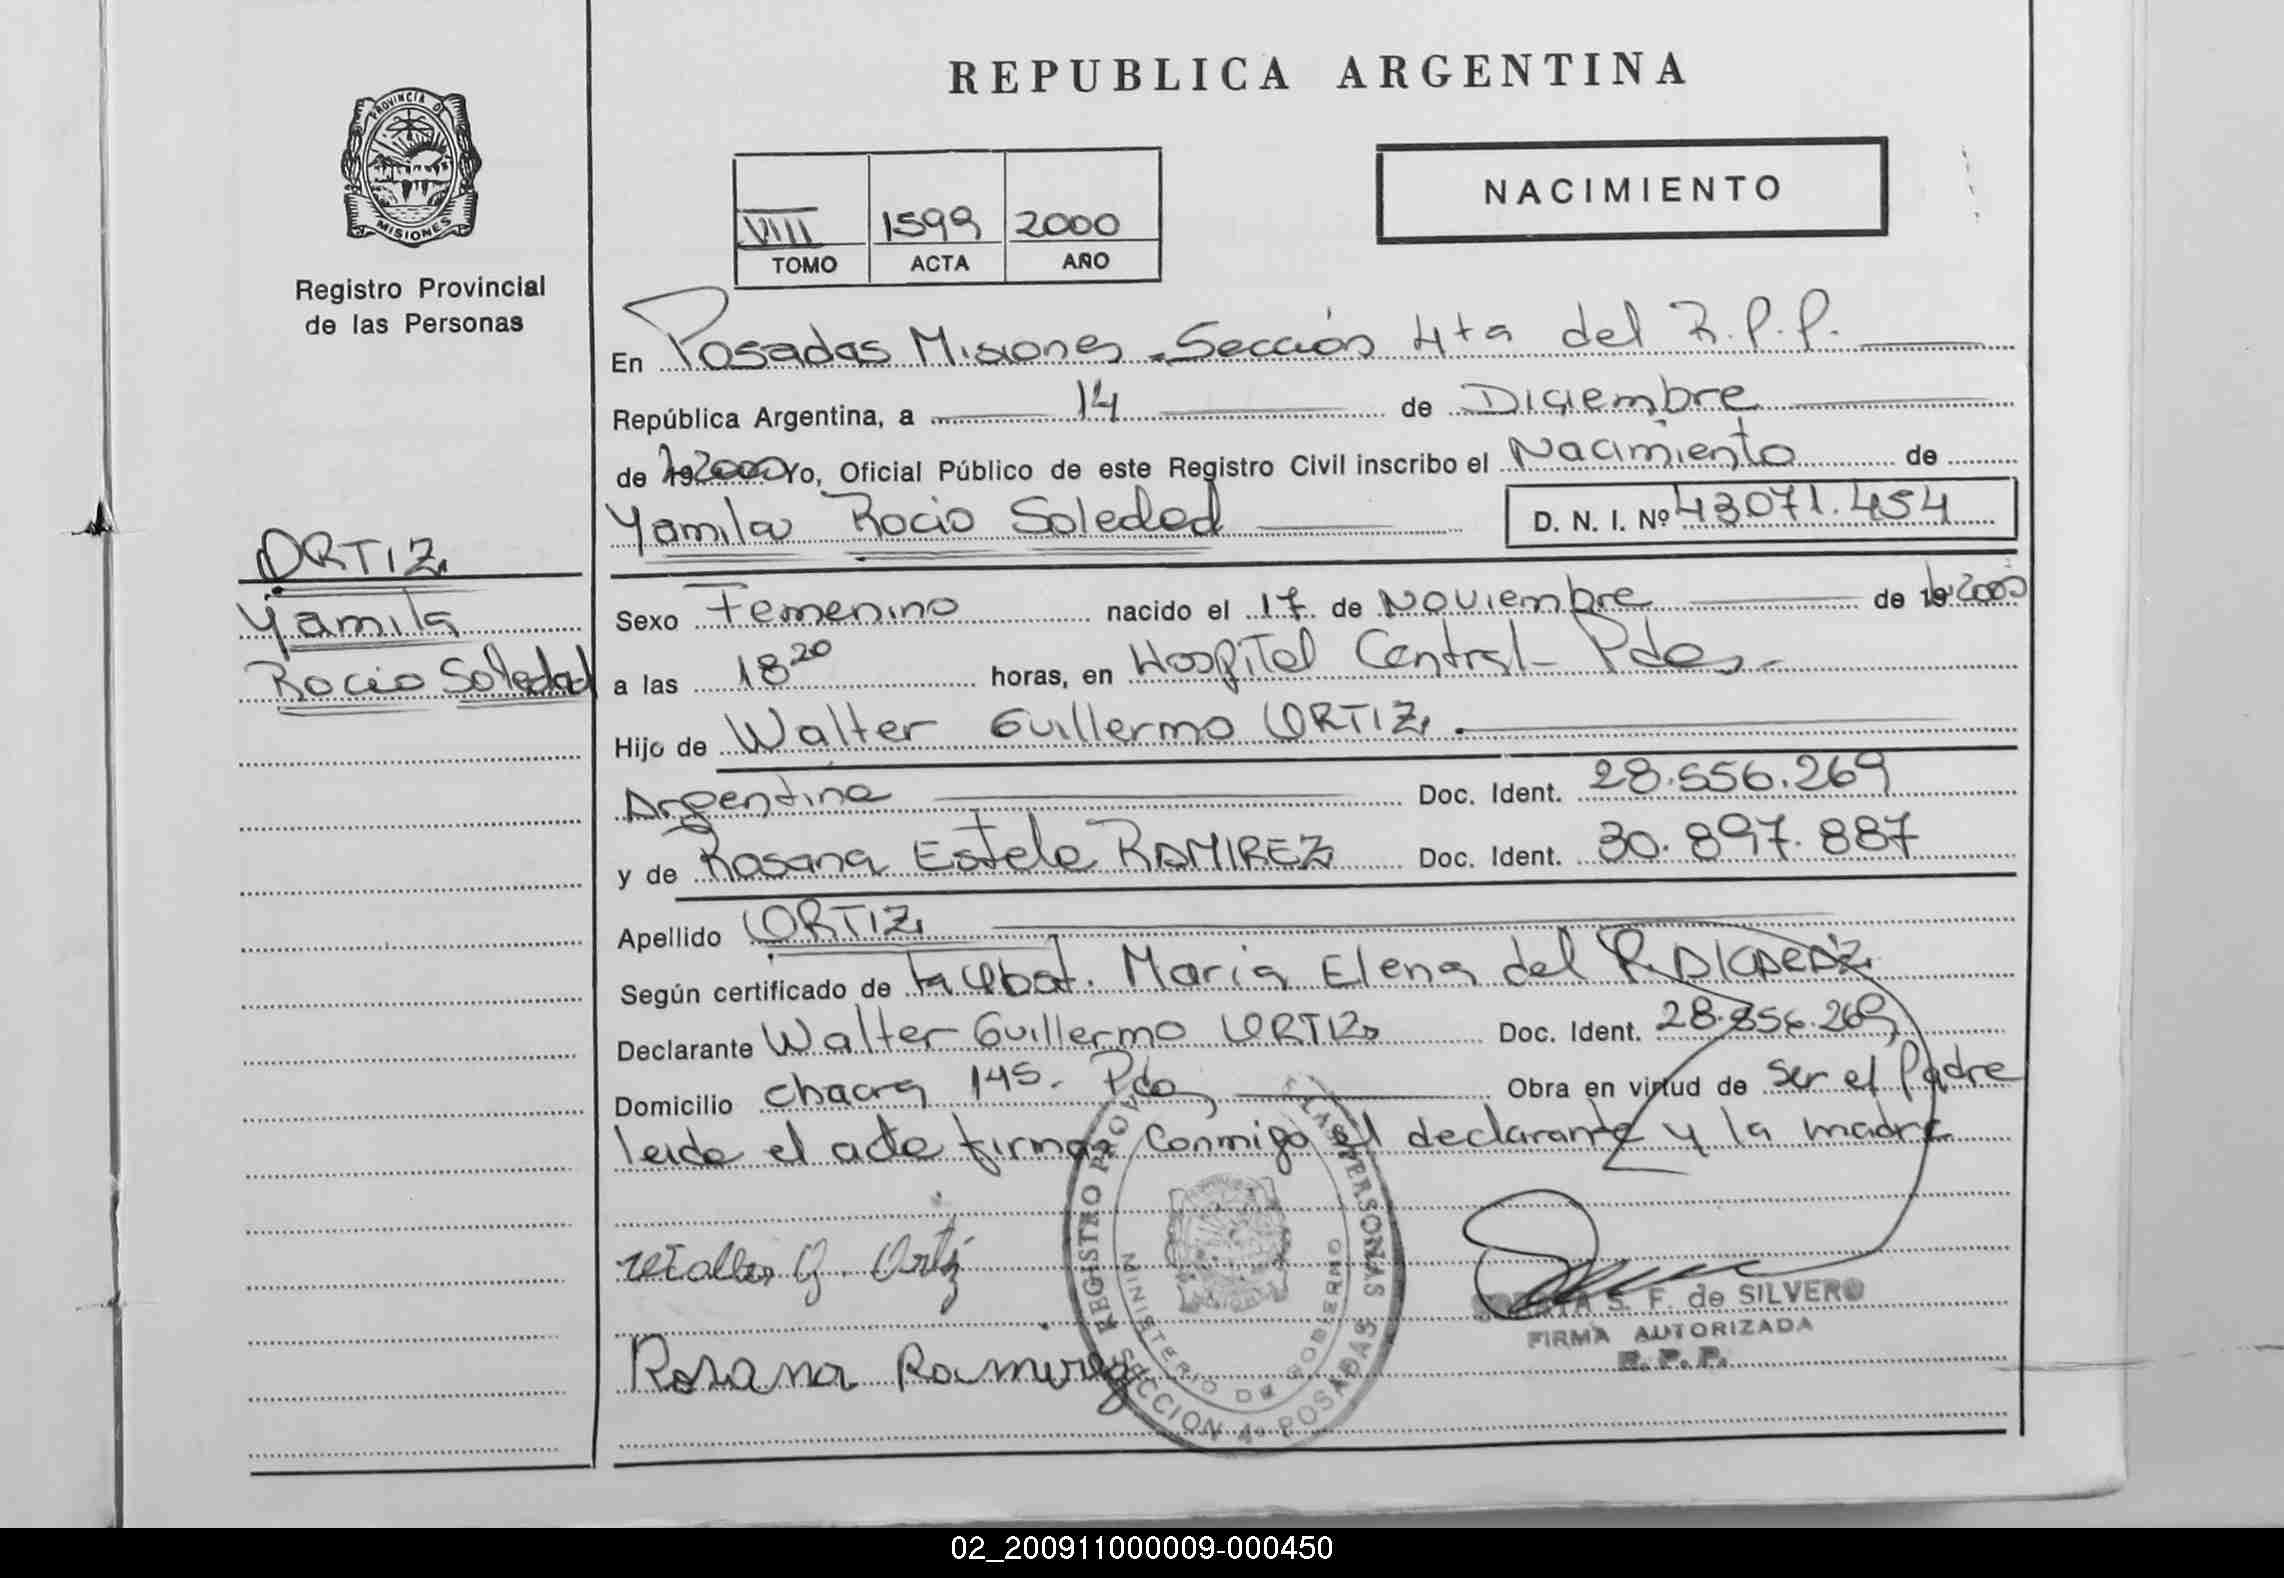 REPUBLICA ARGENTINA
PROVINCIA DE
MISIONES
Registro Provincial
de las Personas
VIII 1599 2000
TOMO ACTA AÑO
NACIMIENTO
En Posadas Misiones - Sección 4ta del R.P.P.
República Argentina, a 14 de Diciembre
de 19 2000 Yo, Oficial Público de este Registro Civil inscribo el Nacimiento de
Yamila Rocio Soledad D. N. I. Nº 43071.454
ORTIZ
Yamila
Rocio Soledad
Sexo Femenino nacido el 17 de Noviembre de 19 2000
a las 18 20 horas, en Hospital Central - Pdas.-
Hijo de Walter Guillermo ORTIZ
Argentina Doc. Ident. 28.556.269
y de Rosana Estela RAMIREZ Doc. Ident. 30.897.887
Apellido ORTIZ
Según certificado de Obst. Maria Elena del R.
Declarante Walter Guillermo ORTIZ Doc. Ident. 28.856.269
Domicilio chacra 145. Pdas Obra en virtud de ser el Padre
leida el acta firman conmigo el declarante y la madre
Walter G. Ortiz
Rosana Ramirez
REGISTRO PROV. LAS PERSONAS
MINISTERIO DE GOBIERNO
SECCION 4a POSADAS
S. F. de SILVERO
FIRMA AUTORIZADA
R. P. P.
02_200911000009-000450